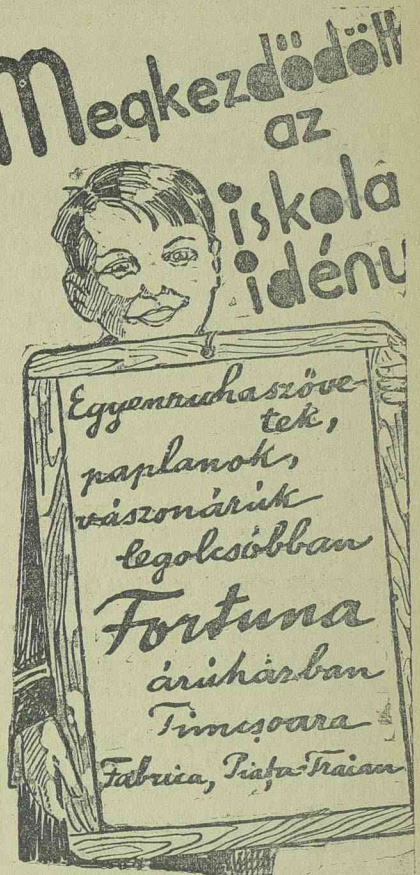 Megkezdödött
az
iskola
idény
Egyenruhaszöve-
tek,
paplanok,
vászonárúk
legolcsóbban
Fortuna
árúházban
Timisoara
Fabrica, Piața-Traian